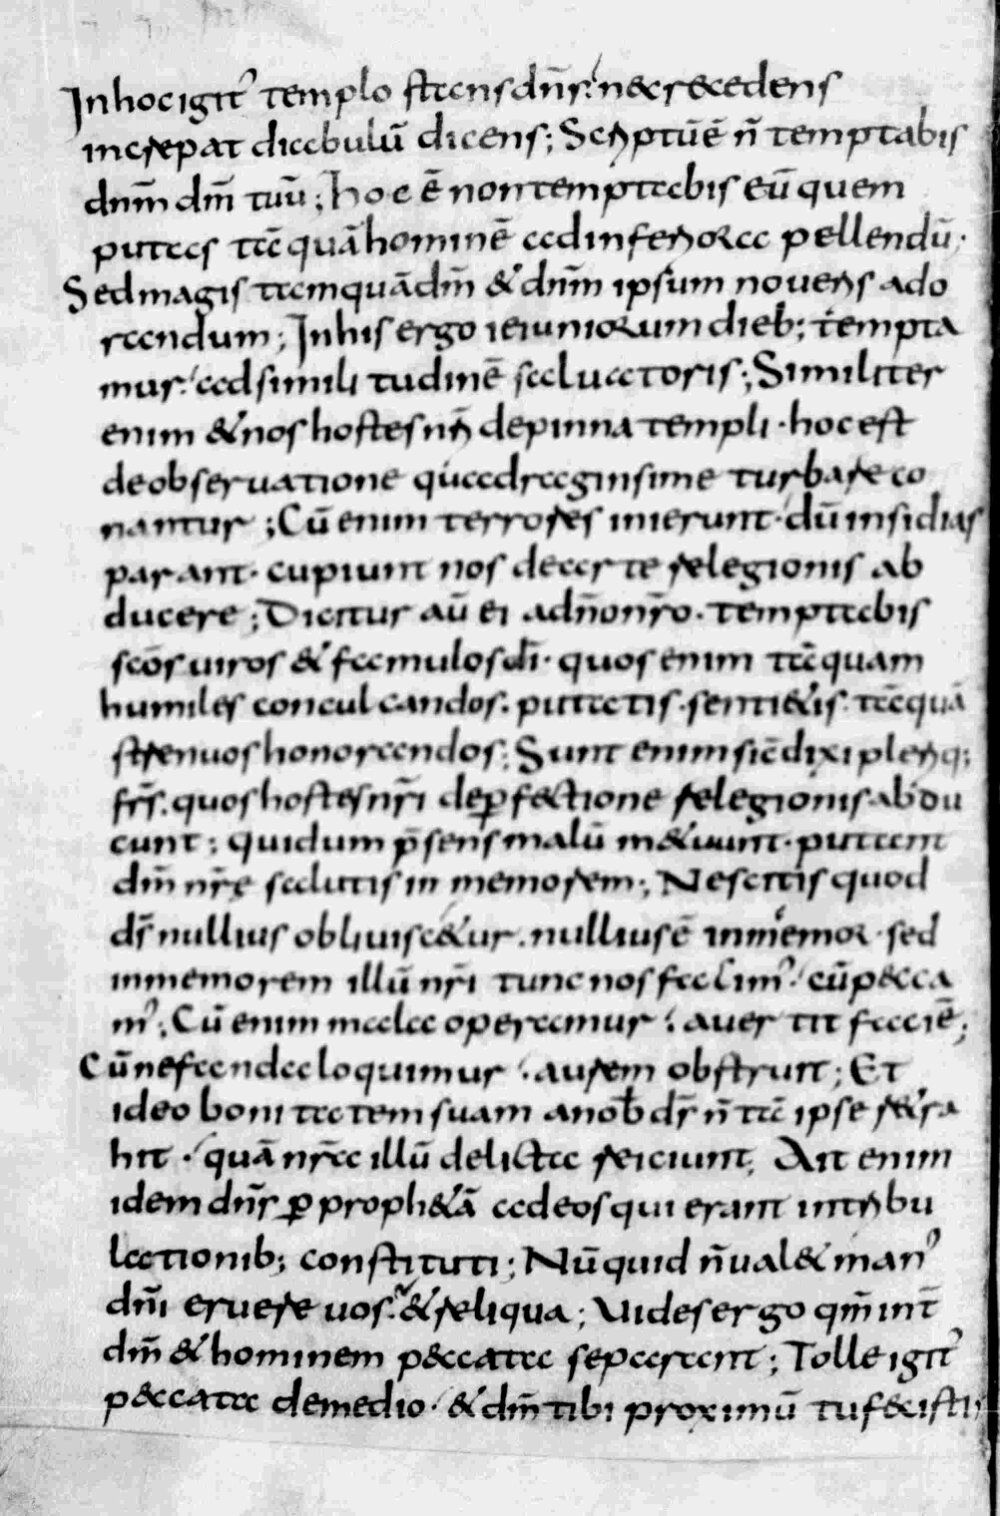 Inhocigit᾿ templo stans dn̄s. nec recedens
increpat diabulū dicens; Scriptūē n̄ temptabis
dnm̄ dm̄ tuū; hoc ē nontemptabis eū quem
putas tāquā hominē ad inferiora pellendū.
Sed magis tamquā dm̄ & dnm̄ ipsum noueris ado
randum; In his ergo ieiuniorum dieb; tempta
mur. ad simili tudinē saluatoris; Similiter
enim & nos hostes nr̄i depinna templi. hoc est
deobseruatione quadraginsime turbare co
nantur; Cū enim terrores inierunt. dū insidias
parant. cupiunt nos dearte relegionis ab
ducere; Dicitur aū ei adn̄onr̄o. temptabis
scōs uiros & famulos dī. quos enim tāquam
humiles conculcandos. putatis. senti&is. tāquā
strenuos honorandos; Sunt enim sic̄ dixi pleriq;
fr̄s. quos hostes nr̄i dep̱fectione relegionis abdu
cunt; quidum p̄sens malū m&uunt. putant
dm̄ nr̄ę salutis in memorem; Nescitis quod
ds̄ nullius obliuisc&ur. nullius ē inmemor. sed
inmemorem illū nr̄i tunc nos facim᾿. cū p&cca
m᾿; Cū enim mala operamur. auertit faciē;
Cū nefanda loquimur. aurem obstruit; Et
ideo boni tatem suam anob̄ ds̄ n̄ tā ipse r&ra
hit. quā nr̄a illū delicta reiciunt; Ait enim
idem dn̄s p̱ proph&ā ad eos qui erant intribu
lationib; constituti; Nūquid n̄ ual& man᾿
dn̄i eruere uos. & reliqua; Uides ergo qm̄ int̄
dm̄ & hominem p&ccata separant; Tolle igit᾿
p&ccata demedio. & dm̄ tibi proximū tu f&cisti;